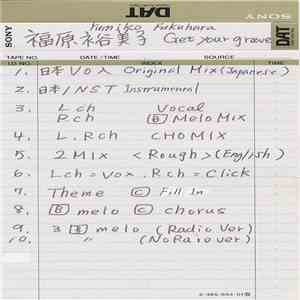 SONY
DAT
SONY
Yumiko Fukuhara
福原裕美子 Get your groove
DAT
TAPE NO. DATE/TIME SOURCE
I.D NO. INDEX TIME
1. 日本VO入 Original Mix (Japanese)
2. 日本/NST Instrumental
3. Lch Vocal
Rch Ⓑ Melo Mix
4. L.Rch CHO MIX
5. 2MIX <Rough> (English)
6. Lch=Vox. Rch=Click
7. Theme Ⓒ Fill In
8. Ⓑ melo Ⓒ chorus
9. 3 Ⓑ melo (Radio Ver)
10. 〃 (No Raio ver)